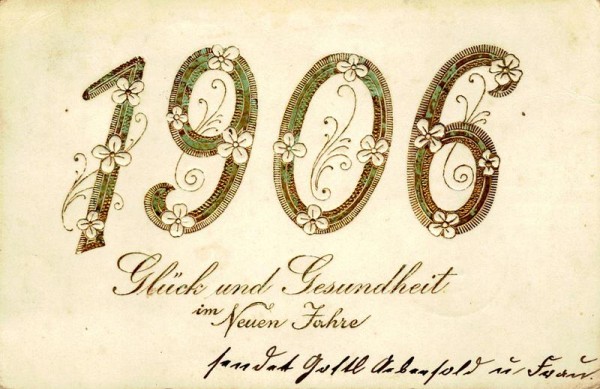 1906
Glück und Gesundheit
im Neuen Jahre
sendet Gottl Aebersold u Frau.